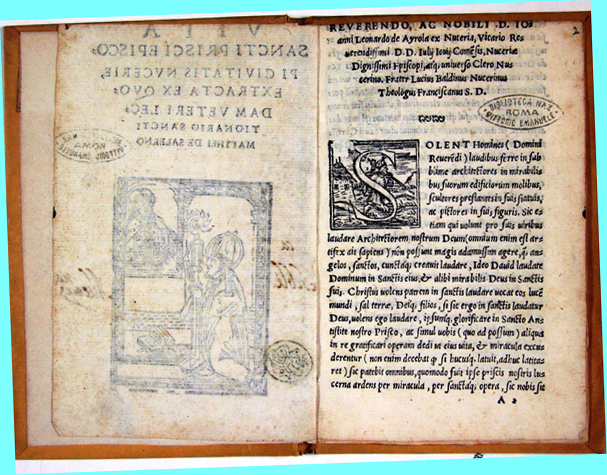 VITA
SANCTI PRISCI EPISCO,
PI CIVITATIS NVCERIE,
EXTRACTA EX QVO,
DAM VETERI LEC,
TIONARIO SANCTI
MATTHEI DE SALERNO
ROMA
VITTORIO EMANUELE
2
REVERENDO, AC NOBILI D. IO,
anni Leonardo de Ayrola ex Nuceria, Vicario Res
uerendissimi D. D. Iulij Iouij Comēsis, Nuceriæ
Dignissimi Episcopi, atq; uniuerso Clero Nus
cerino. Frater Lucius Baldinus Nucerinus
Theologus Franciscanus S. D.
BIBLIOTECA NAZ.
ROMA
VITTORIO EMANUELE
SOLENT Homines (Domini
Reuerēdi) laudibus ferre in sub
blime architectores in mirabilis
bus suorum edificiorum molibus,
sculptores prestantes in suis statuis,
ac pictores in suis figuris. Sic es
tiam qui uolunt pro suis uiribus
laudare Architectorem nostrum Deum (omnium enim est ars
tifex ais sapiens) non possunt magis adamussem agere, q̄ ans
gelos, sanctos, cunctaq; creauit laudare, Ideo Dauid laudate
Dominum in Sanctis eius, & alibi mirabilis Deus in Sanctis
suis. Christus uolens patrem in sanctis laudare uocat eos lucē
mundi, sal terræ, Deiq; filios, si sic ergo in sanctis laudatur
Deus, uolens ego laudare, ipsumq; glorificare in Sancto Ans
tistite nostro Prisco, ac simul uobis (quo ad possum) aliqua
in re gratificari operam dedi ut eius uita, & miracula excus
derentur (non enim decebat ꝙ si hucusq; latuit, adhuc latitas
ret) sic patebit omnibus, quomodo fuit ipse priscis nostris lus
cerna ardens per miracula, per sanctaq; opera, sic nobis sit
A 2